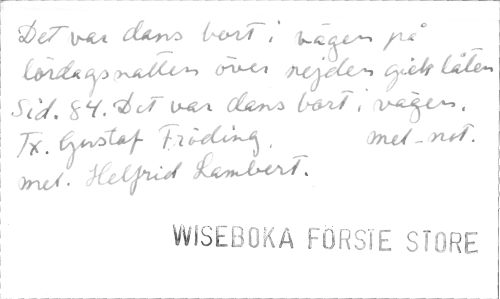 Det var dans bort i vägen på
lördagsnatten över nejden gick låten
Sid. 84. Det var dans bort i vägen.
Tx. Gustaf Fröding. mel-not.
mel. Helfrid Lambert.
WISEBOKA FÖRSTE STORE